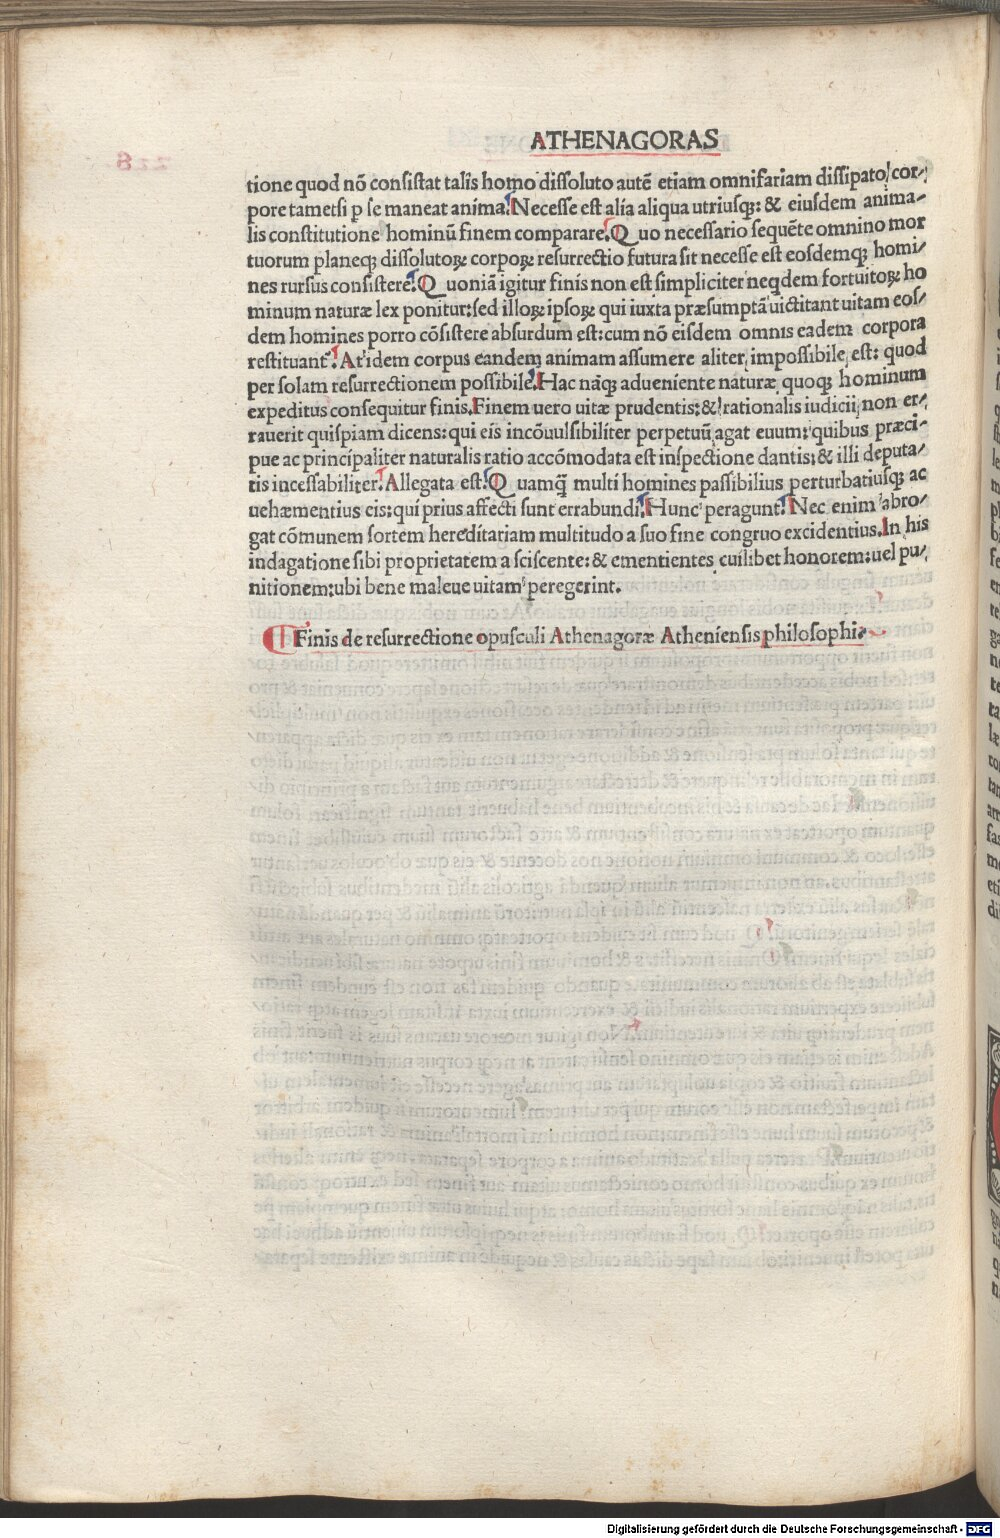 ATHENAGORAS
tione quod nō consistat talis homo dissoluto autē etiam omnifariam dissipato cor/
pore tametsi p se maneat anima. Necesse est alia aliqua utriusq: & eiusdem anima/
lis constitutione hominū finem comparare. Quo necessario sequēte omnino mor
tuorum planeq dissolutoꝝ corpoꝝ resurrectio futura sit necesse est eosdemq homi/
nes rursus consistere. Quoniā igitur finis non est simpliciter neqdem fortuitoꝝ ho
minum naturæ lex ponitur: sed illoꝝ ipsoꝝ qui iuxta præsumptā uictitant uitam eos/
dem homines porro cōsistere absurdum est: cum nō eisdem omnis eadem corpora
restituant. At idem corpus eandem animam assumere aliter impossibile est: quod
per solam resurrectionem possibile. Hac nāq adueniente naturæ quoq hominum
expeditus consequitur finis. Finem uero uitæ prudentis: & rationalis iudicii non er/
rauerit quispiam dicens: qui eis incōuulsibiliter perpetuū agat euum: quibus præci/
pue ac principaliter naturalis ratio accōmodata est inspectione dantis: & illi deputa/
tis incessabiliter. Allegata est. Quamq̄ multi homines passibilius perturbatiusq ac
uehæmentius eis: qui prius affecti sunt errabundi. Hunc peragunt. Nec enim abro/
gat cōmunem sortem hereditariam multitudo a suo fine congruo excidentius. In his
indagatione sibi proprietatem a sciscente: & ementientes cuilibet honorem: uel pu/
nitionem: ubi bene maleue uitam peregerint.
Finis de resurrectione opusculi Athenagoræ Atheniensis philosophi.
Digitalisierung gefördert durch die Deutsche Forschungsgemeinschaft - DFG